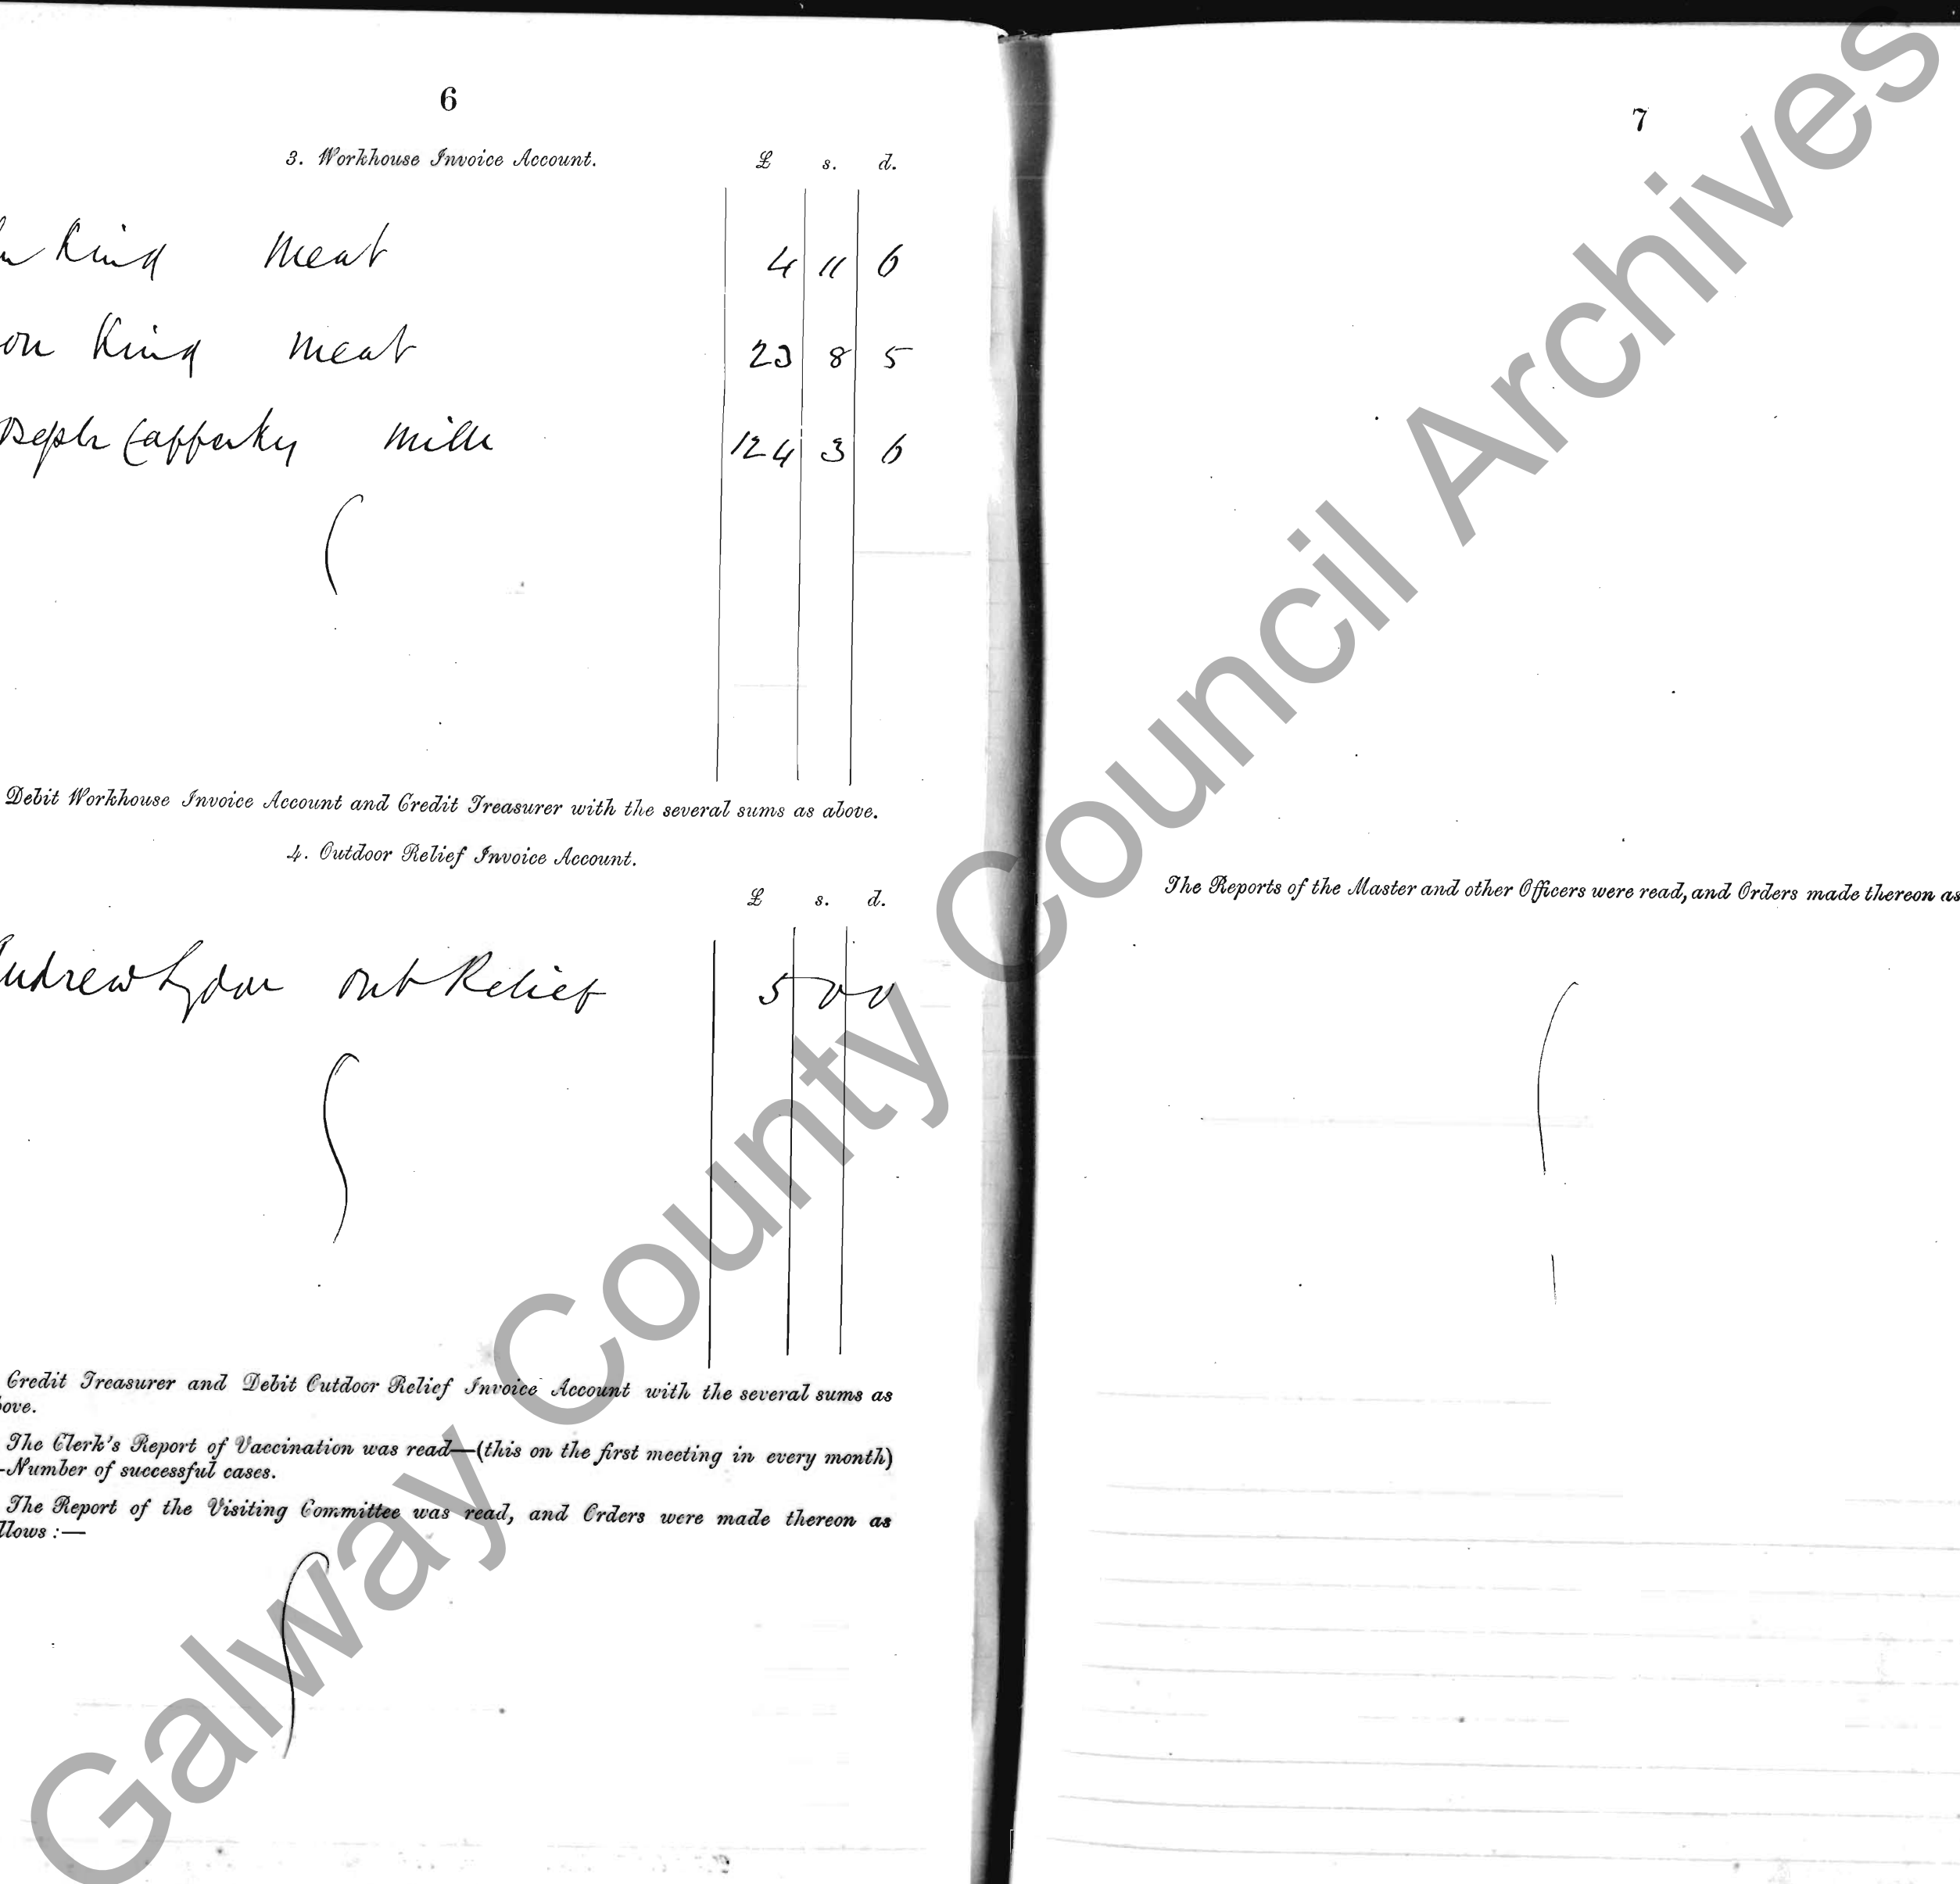 6
3. Workhouse Invoice Account. £ s. d.
King Meat 4 11 6
on King Meat 23 8 5
oseph Cafferky Milk 124 3 6
Debit Workhouse Invoice Account and Credit Treasurer with the several sums as above.
4. Outdoor Relief Invoice Account.
£ s. d.
Andrew Lydon Out Relief 5 0 0
Credit Treasurer and Debit Outdoor Relief Invoice Account with the several sums as
ove.
The Clerk's Report of Vaccination was read—(this on the first meeting in every month)
-Number of successful cases.
The Report of the Visiting Committee was read, and Orders were made thereon as
llows :—
7
The Reports of the Master and other Officers were read, and Orders made thereon as
Galway County Council Archives